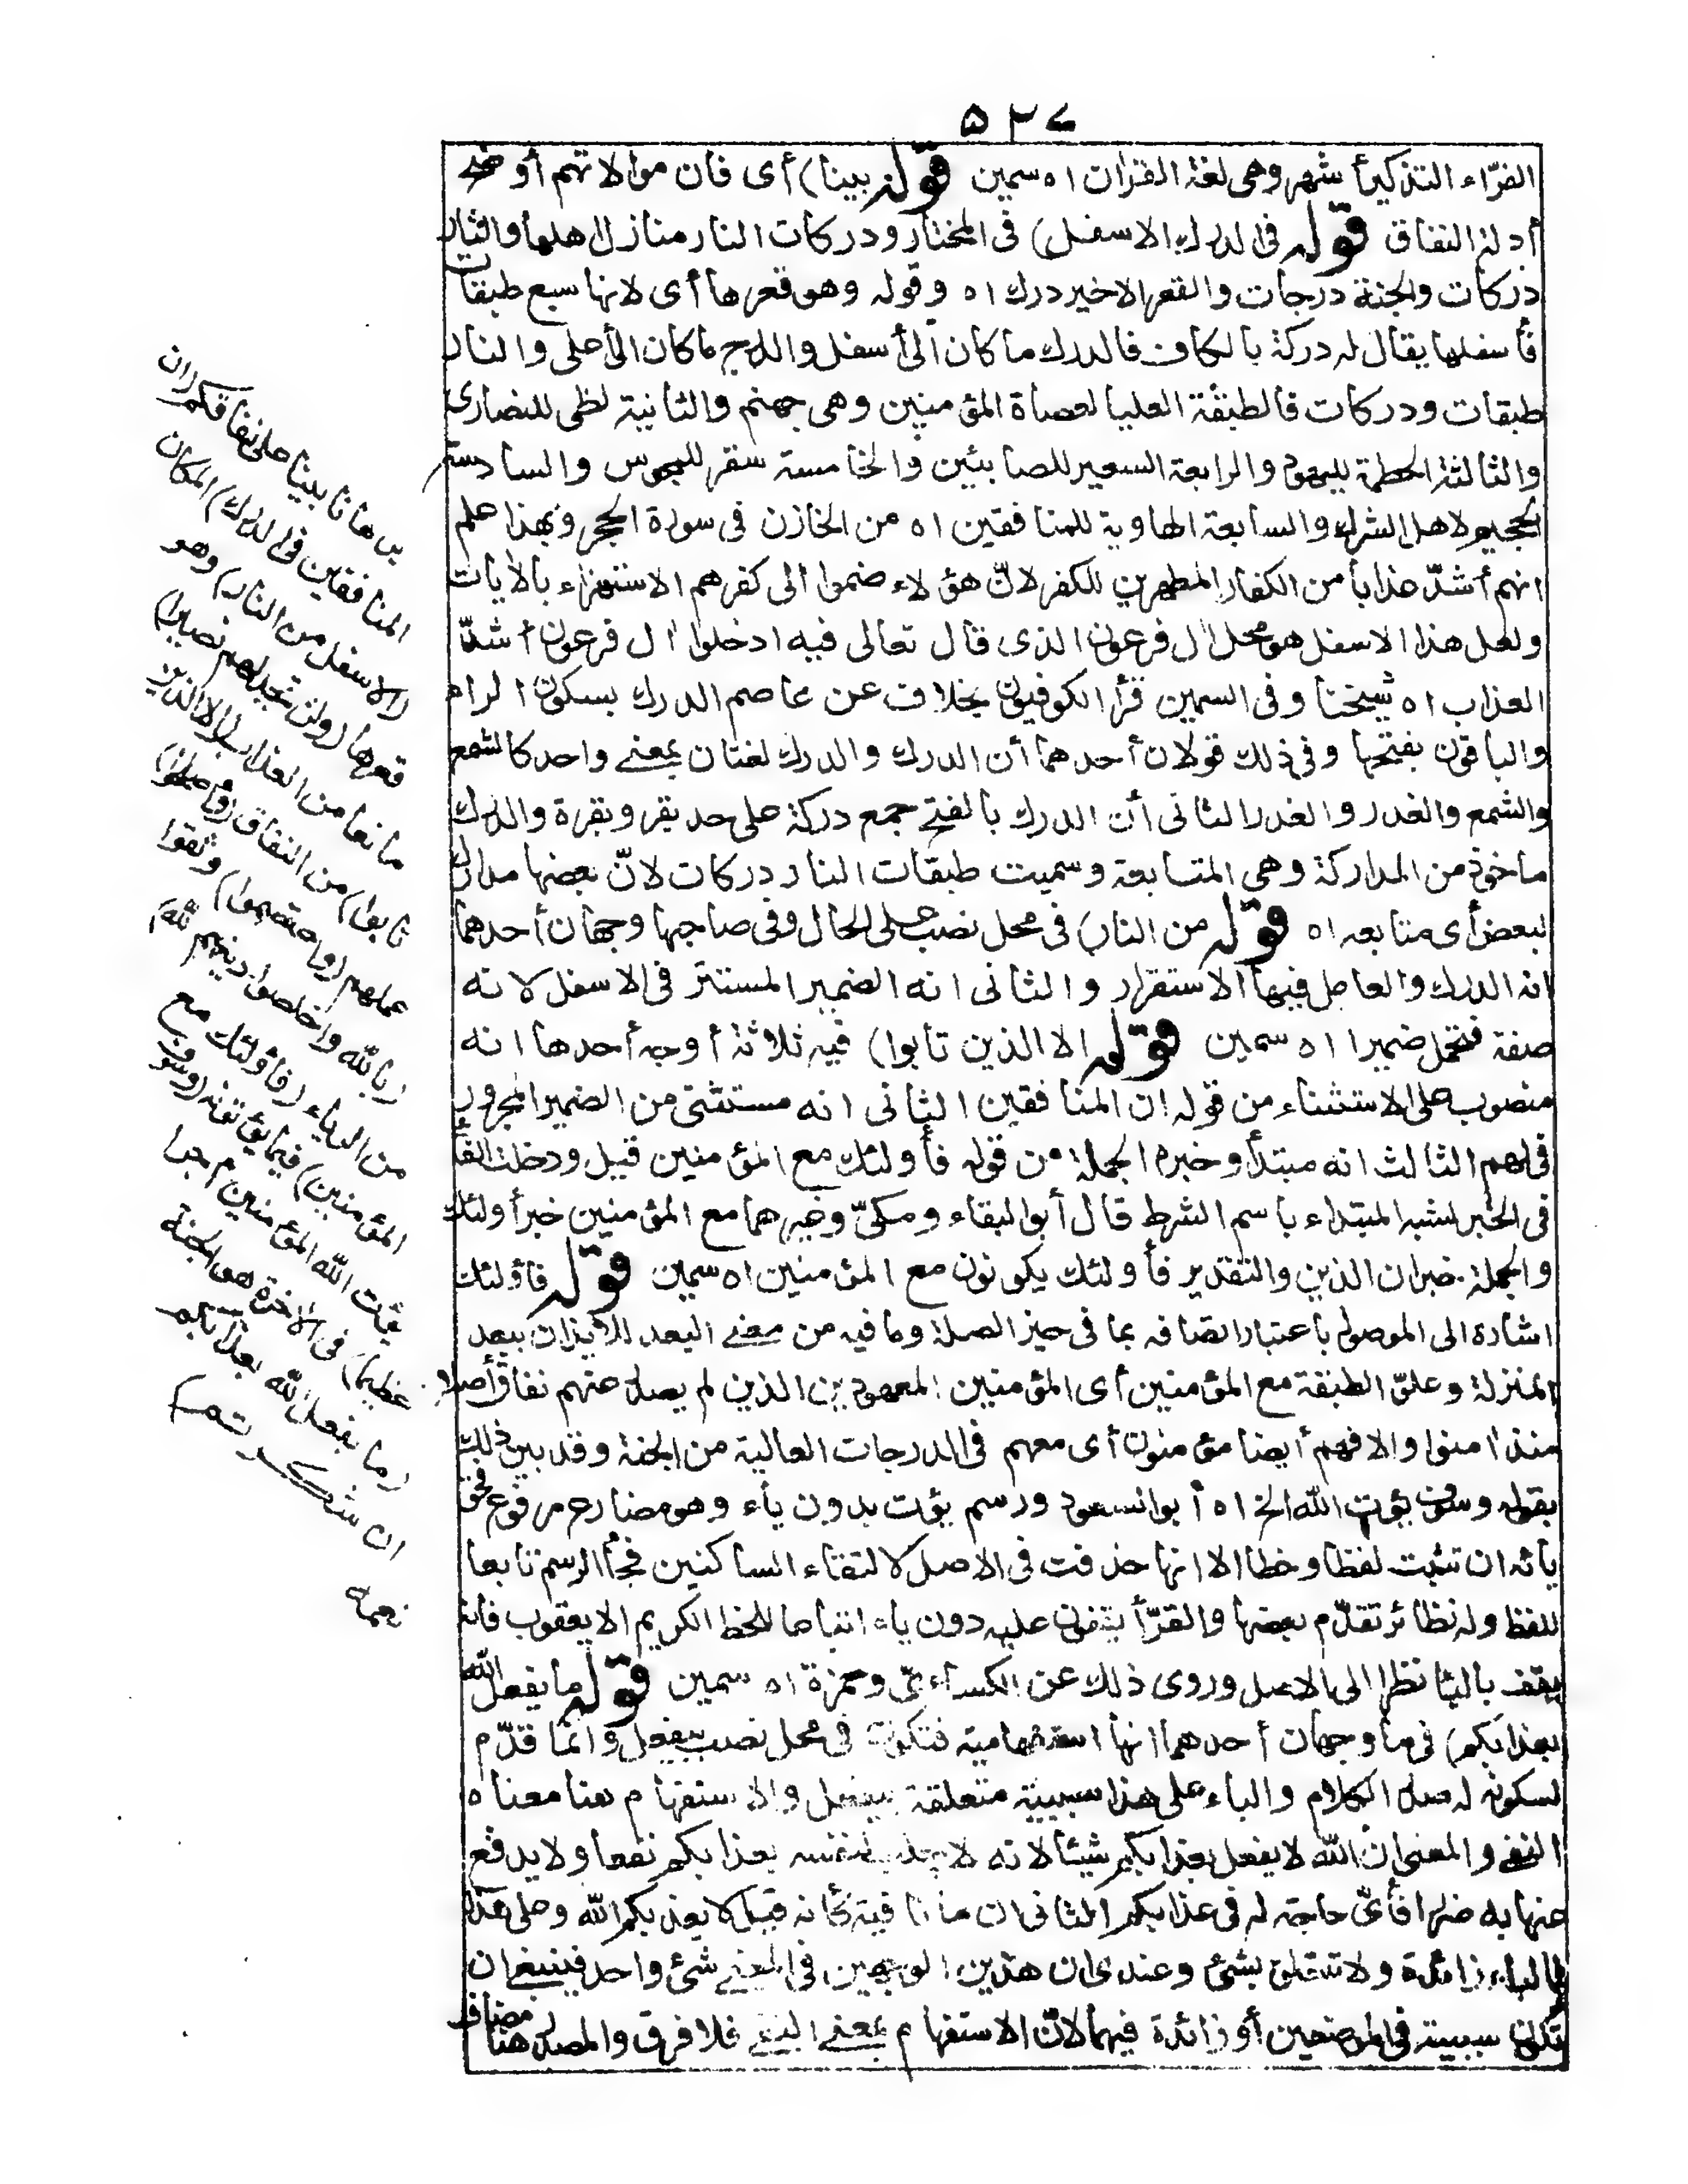 ٥٢٧
الفرّاء التذكير أشهر وهى لغة القران اه سمين قوله بينا) أى فان موالاتهم أوضح
أدلة النفاق قوله فى الدرك الاسفل) فى المختار ودركات النار منازل اهلها والنار
دركات والجنة درجات والقعر الاخير درك اه وقوله وهو قعرها أى لانها سبع طبقات
فأسفلها يقال له دركة بالكاف فالدرك ما كان الى أسفل والدرج ما كان الى أعلى والنار
طبقات ودركات فالطبقة العليا لعصاة المؤمنين وهى جهنم والثانية لظى للنصارى
والثالثة الحطمة لليهود والرابعة السعير للصابئين والخامسة سقر للمجوس والسادسة
الجحيم لاهل الشرك والسابعة الهاوية للمنافقين اه من الخازن فى سورة الحجر وبهذا علم
انهم أشدّ عذابا من الكفار المظهرين للكفر لانّ هؤلاء ضموا الى كفرهم الاستهزاء بالأيات
ولعل هذا الاسفل هو محل ال فرعون الذى قال تعالى فيه ادخلوا ال فرعون أشدّ
العذاب اه شيخنا وفى السمين قرأ الكوفيون بخلاف عن عاصم الدرك بسكون الراء
والباقون بفتحها وفى ذلك قولان أحدهما أن الدرك والدرك لغتان بمعنے واحد كالشمع
والشمع والغدر والغدر الثانى أن الدرك بالفتح جمع دركة على حد بقر وبقرة والدرك
ماخوذ من المداركة وهى المتابعة وسميت طبقات النار دركات لانّ بعضها مدارك
لبعض أى متابعه اه قوله من النار) فى محل نصب على الحال وفى صاحبها وجهان أحدهما
انه الدرك والعامل فيها الاستقرار والثانى انه الضمير المستتر فى الاسفل لانه
صفة فتحمل ضميرا اه سمين قوله الا الذين تابوا) فيه ثلاثة أوجه أحدها انه
منصوب على الاستثناء من قوله ان المنافقين الثانى انه مستثنى من الضمير المجرور
فى لهم الثالث انه مبتدأ وخبره الجملة من قوله فأولئك مع المؤمنين قيل ودخلت الفاء
فى الخبر لشبه المبتداء باسم الشرط قال أبو البقاء ومكىّ وغيرهما مع المؤمنين خبر أولئك
والجملة خبر ان الذين والتقدير فأولئك يكونون مع المؤمنين اه سمين قوله فاولئك
اشارة الى الموصول باعتبار اتصافه بما فى حيز الصلة وما فيه من معنے البعد للأيذان ببعد
المنزلة وعلوّ الطبقة مع المؤمنين أى المؤمنين المعهودين الذين لم يصدر عنهم نفاق أصلا
منذ امنوا والا فهم أيضا مؤمنون أى معهم فى الدرجات العالية من الجنة وقد بين ذلك
بقوله وسوف يؤت الله الخ اه أبو السعود ورسم يؤت بدون ياء وهو مضارع مرفوع فحق
يائه ان تثبت لفظا وخطا الا انها حذفت فى الاصل لالتقاء الساكنين فجاء الرسم تابعا
للفظ وله نظائر تقدّم بعضها والقرّأ يقفون عليه دون ياء اتباعا للخط الكريم الا يعقوب فانه
يقف باليا نظرا الى الاصل وروى ذلك عن الكساءىّ وحمزة اه سمين قوله ما يفعل الله
بعذابكم) فى ما وجهان أحدهما انها استفهامية فتكون فى محل نصب بيفعل وانما قدّم
لكونه له صدر الكلام والباء على هذا سببية متعلقة بيفعل والاستفهام هنا معناه
النفے والمعنى ان الله لا يفعل بعذابكم شيئا لانه لا يجلب لنفسه بعذابكم نفعا ولا يدفع
عنها به ضررا فأىّ حاجة له فى عذابكم الثانى ان ما نافية كأنه قيل لا يعذبكم الله وعلى هذا
فالباء زائدة ولا تتعلق بشئ وعندى ان هذين الوجهين فى المعنے شئ واحد فينبغے ان
تكون سببية فى الموضعين أو زائدة فيهما لانّ الاستفهام بمعنے النفے فلا فرق والمصدر هنا مضاف
برهانا بينا على نفاقكم (ان
المنافقين فى الدرك) المكان
(الاسفل من النار) وهو
قعرها (ولن تجد لهم نصيرا)
مانعا من العذاب (الا الذين
تابوا) من النفاق (وأصلحوا)
عملهم (واعتصموا) وثقوا
(بالله وأخلصوا دينهم لله)
من الرياء (فاولئك مع
المؤمنين) فيما يؤتونه (وسوف
يؤت الله المؤمنين أجرا
عظيما) فى الاخرة هو الجنة
(ما يفعل الله بعذابكم
ان شكرتم)
نعمه